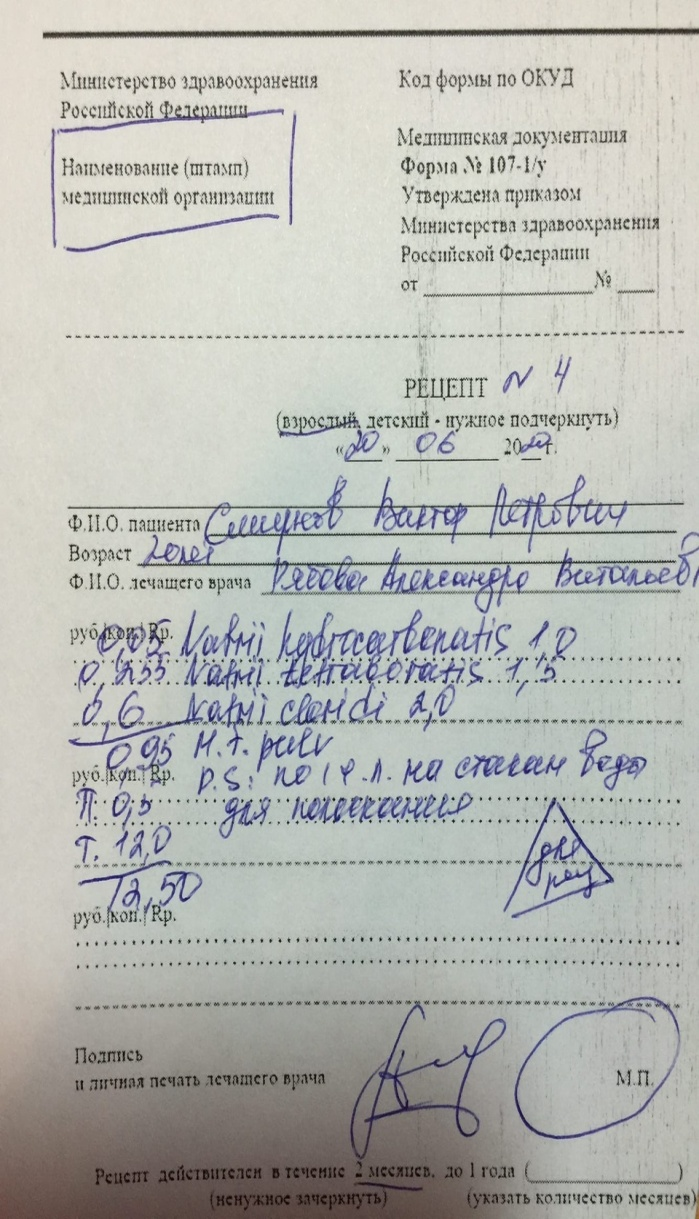 Министерство здравоохранения
Российской Федерации
Наименование (штамп)
медицинской организации
Код формы по ОКУД
Медицинская документация
Форма № 107-1/у
Утверждена приказом
Министерства здравоохранения
Российской Федерации
от № 
РЕЦЕПТ N 4
(взрослый, детский - нужное подчеркнуть)
«20» 06 2020г.
Ф.И.О. пациента Смирнов Виктор Петрович
Возраст
Ф.И.О. лечащего врача Александра
руб.|коп.| Rp. 0,05 Natrii hydrocarbonatis 1,0
Natrii tetraboratis 1,5
0,6 Natrii cloridi 2,0
0,95 M.f. pulv
руб.|коп.| Rp. D.S: по 1 ч.л. на стакан воды
П. 0,5 для полоскания
Т. 12,0
12,50
для
рец
руб.|коп.| Rp.
Подпись
и личная печать лечащего врача
М.П.
Рецепт действителен в течение 2 месяцев, до 1 года ( )
(ненужное зачеркнуть) (указать количество месяцев)